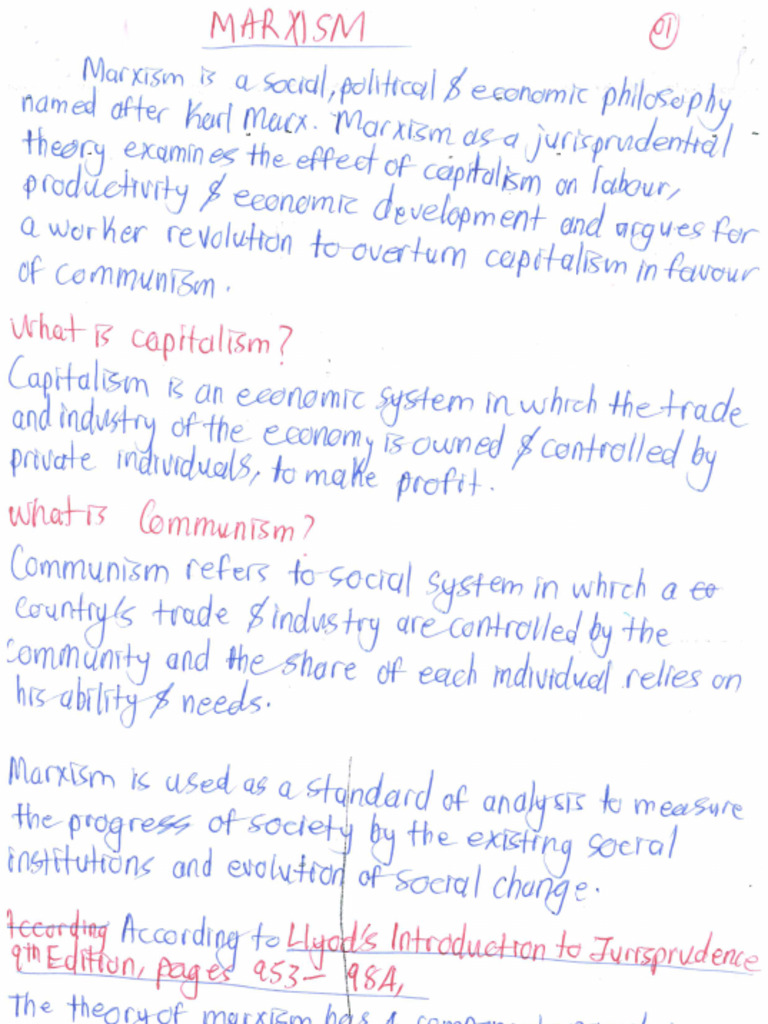 MARXISM
01
Marxism is a social, political & economic philosophy
named after Karl Marx. Marxism as a jurisprudential
theory examines the effect of capitalism on labour,
productivity & economic development and argues for
a worker revolution to overturn capitalism in favour
of communism.
What is capitalism?
Capitalism is an economic system in which the trade
and industry of the economy is owned & controlled by
private individuals, to make profit.
What is Communism?
Communism refers to social system in which a co
country's trade & industry are controlled by the
community and the share of each individual relies on
his ability & needs.
Marxism is used as a standard of analysis to measure
the progress of society by the existing social
institutions and evolution of social change.
According According to Llyod's Introduction to Jurisprudence
9th Edition, pages 953- 98A,
The theory of marxism has 4